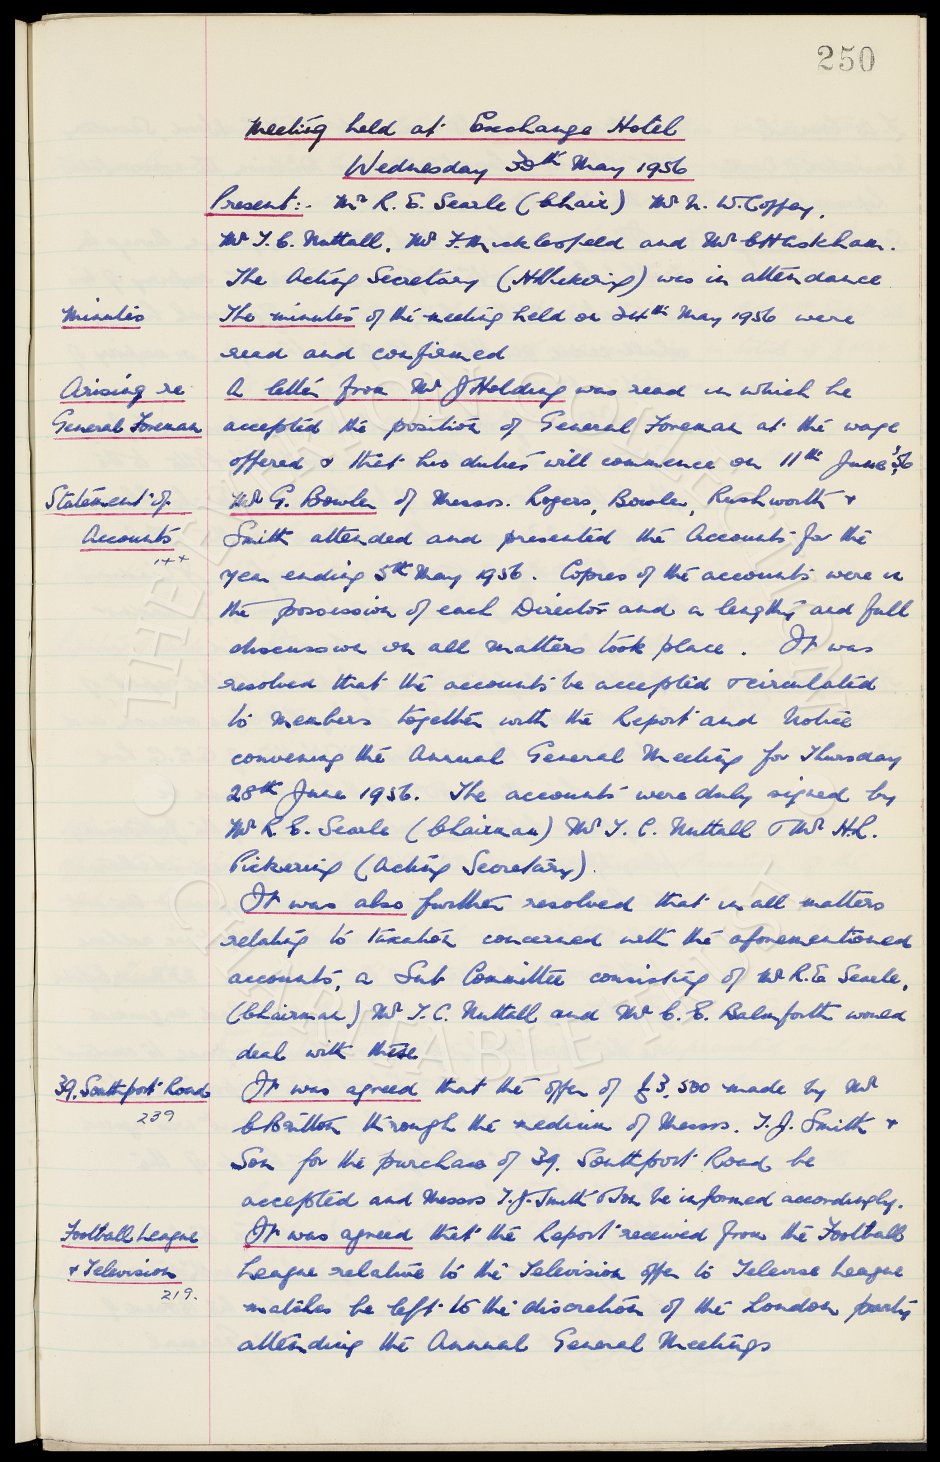 250
Meeting held at Exchange Hotel
Wednesday 30th May 1956
Present:- Mr R. E. Searle (Chair) Mr N. W. Coffey,
Mr T. C. Nuttall, Mr F. Micklesfield and Mr C H Askham.
The Acting Secretary (H L Pickering) was in attendance
Minutes
The minutes of the meeting held on 24th May 1956 were
read and confirmed
Arising re
General Foreman
A letter from Mr J Holding was read in which he
accepted the position of General Foreman at the wage
offered & that his duties will commence on 11th June '56
Statement of
Accounts
Mr G. Bowler of Messrs. Rogers, Bowler, Rushworth &
Smith attended and presented the Accounts for the
year ending 5th May 1956. Copies of the accounts were in
the possession of each Director and a lengthy and full
discussion on all matters took place. It was
resolved that the accounts be accepted & circulated
to members together with the Report and Notice
convening the Annual General Meeting for Thursday
28th June 1956. The accounts were duly signed by
Mr R. E. Searle (Chairman) Mr T. C. Nuttall & Mr H.L.
Pickering (Acting Secretary).
It was also further resolved that in all matters
relating to taxation concerned with the aforementioned
accounts, a Sub Committee consisting of Mr R. E Searle,
(Chairman) Mr T. C. Nuttall and Mr C. E. Balmforth would
deal with these
39, Southport Road
239
It was agreed that the offer of £3,500 made by Mr
C Britton through the medium of Messrs. T. J. Smith &
Son for the purchase of 39. Southport Road be
accepted and Messrs T. J. Smith & Son be informed accordingly.
Football League
& Television
219.
It was agreed that the Report received from the Football
League relative to the Television offer to Televise League
matches be left to the discretion of the London party
attending the Annual General Meetings
THE EVERTON COLLECTION
CHARITABLE TRUST